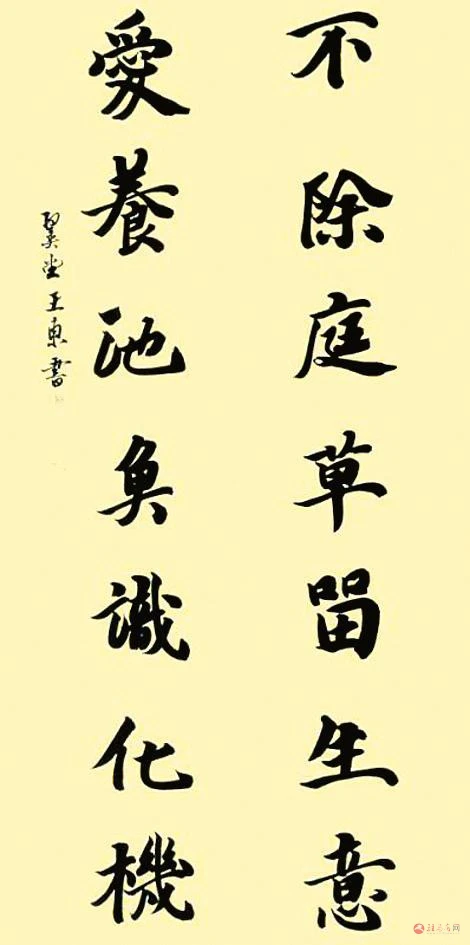 不除庭草留生意
愛養池魚識化機
翼堂王東書